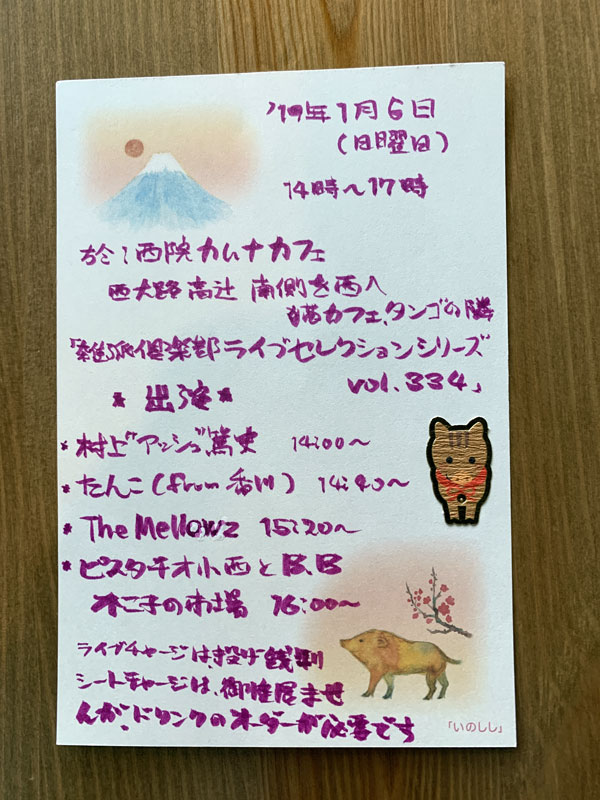 '19年1月6日
(日曜日)
14時〜17時
於:西院カムナカフェ
西大路高辻 南側を西入
猫カフェ、タンゴの隣
「雑派倶楽部ライブセレクションシリーズ
vol.334」
* 出演 *
* 村上"アッシュ"篤史 14:00〜
* たんこ(from 香川) 14:40〜
* The Mellowz 15:20〜
* ピスタチオ小西とB.B
木こ子の市場 16:00〜
ライブチャージは投げ銭制
シートチャージは、御座居ませ
んが、ドリンクのオーダーが必要です
「いのしし」